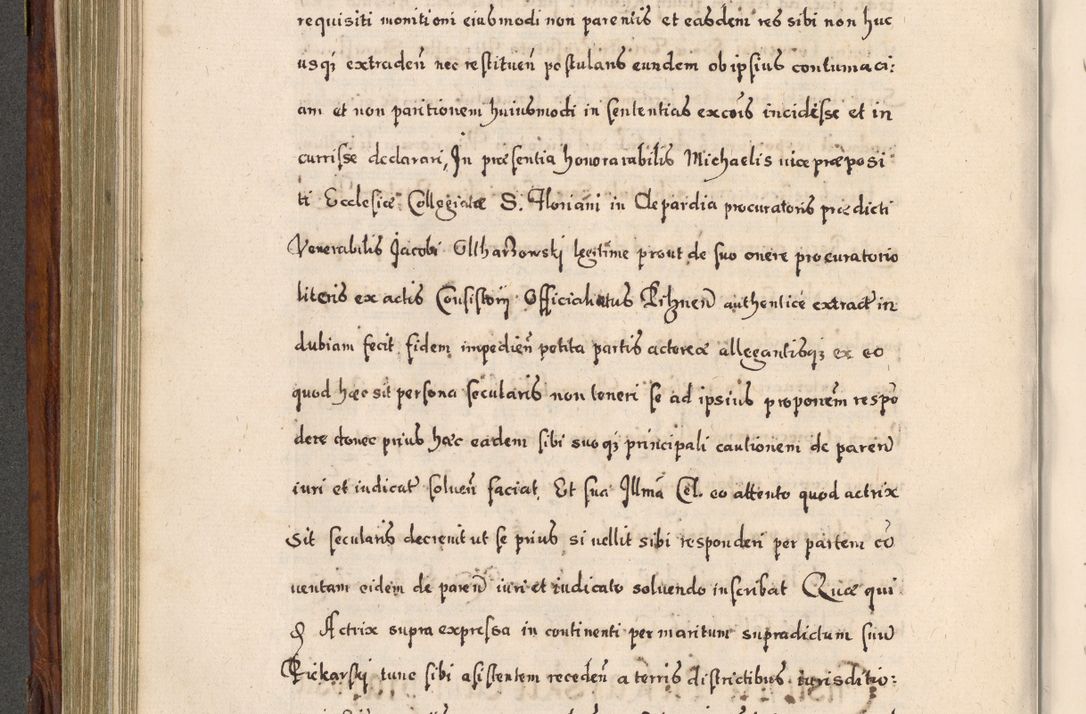 requisiti monitioni eiusmodi non parentis et easdem res sibi non huc
usq3 extradeñ nec restitueñ postulans eundem ob ipsius contumaci:
am et non paritionem huiusmodi in sententias excõis incidisse et in
currisse declarari, In præsentia honorarabilis Michaelis vicepræposi
ti Ecclesiæ Collegiatæ S. Floriani in Clepardia procuratoris prædicti
Venerabilis Jacobi legitime prout de suo onere procuratorio
literis ex actis Consistorij Officialatus authentice extract in
dubiam fecit fidem impedień petita partis actoreæ allegantisq3 ex eo
quod hæc sit persona secularis non teneri se ad ipsius proponem respõ
dere donec prius hæc eadem sibi suoq3 principali cautionem de pareñ
iuri et iudicat solueñ faciat. Et sua Illmã Cel. eo attento quod actrix
sit secularis decrevit ut se prius si vellit sibi responderi per partem cõ
ventam eidem de pareñ iuri et iudicato solvendo inscribat Quæ qui
Actrix supra expressa in continenti per maritum supradictum suũ
Piekarskij tunc sibi asistentem recedeñ a terris districtibus iurisditio: